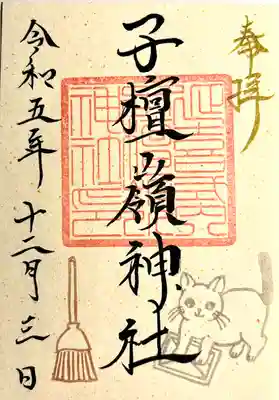 奉拝
子檀嶺神社
令和五年 十二月 三日